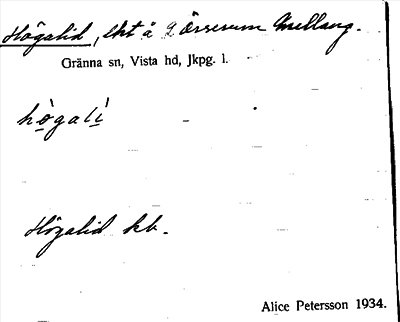 Högalid, lht å 2 Örserum Mellang.
Gränna sn, Vista hd, Jkpg. l.
hò̱galì̱
Högalid kb.
Alice Petersson 1934.